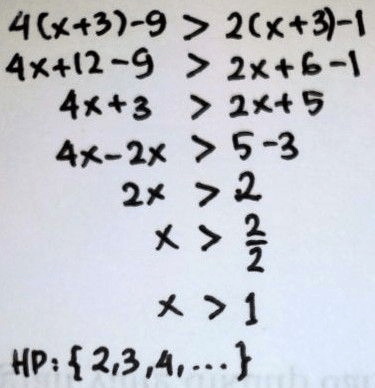 4(x+3)-9 > 2(x+3)-1
4x+12-9 > 2x+6-1
4x+3 > 2x+5
4x-2x > 5-3
2x > 2
x > 2/2
x > 1
HP: {2,3,4,...}